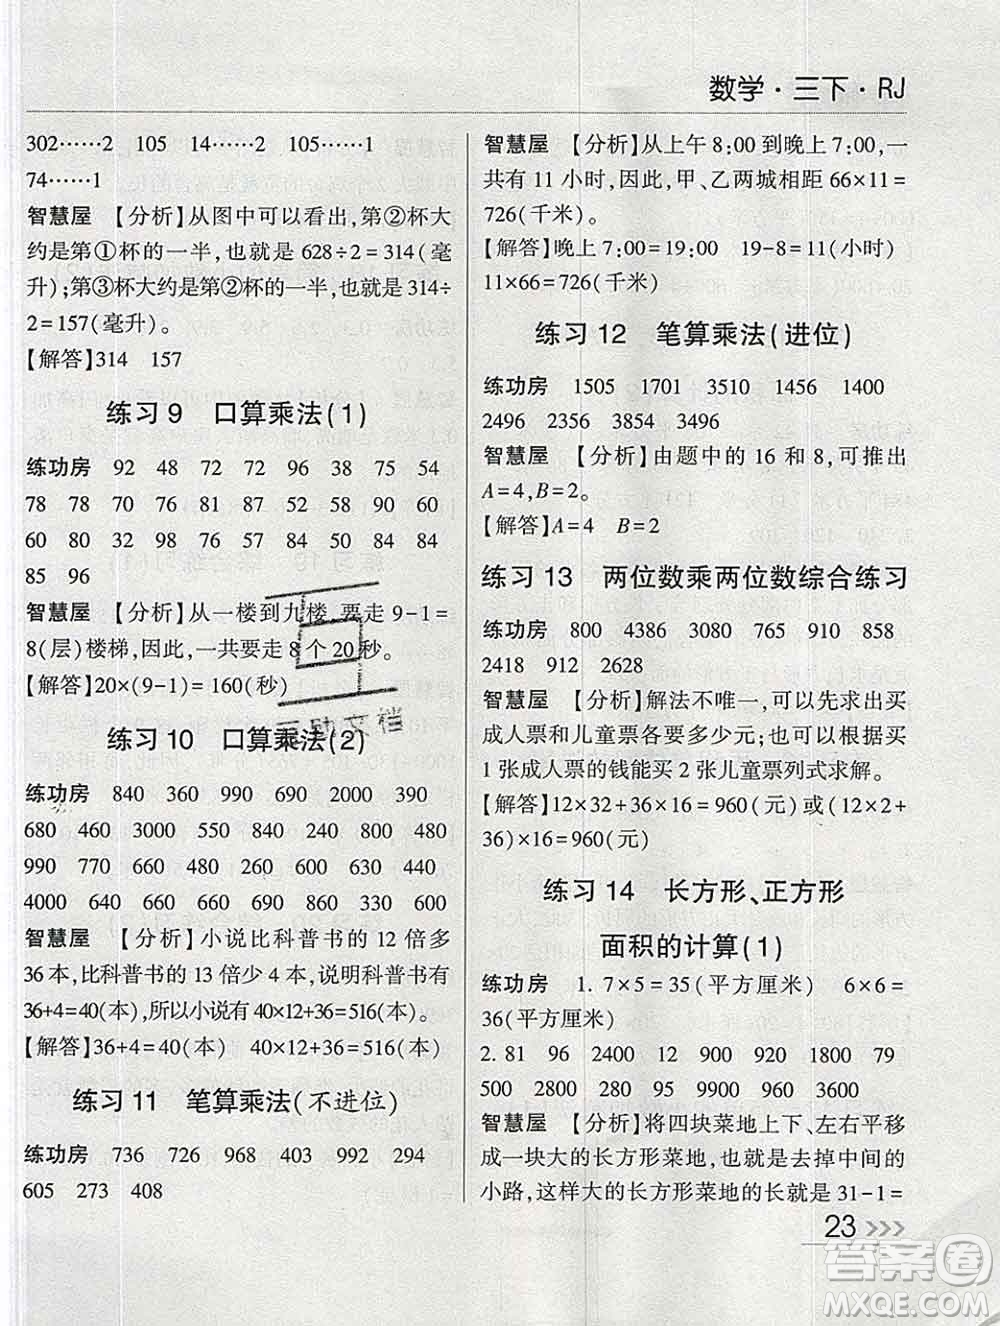 数学·三下·RJ
302……2 105 14……2 105……1
74……1
智慧屋 【分析】从图中可以看出,第②杯大
约是第①杯的一半,也就是 628÷2=314(毫
升);第③杯大约是第②杯的一半,也就是 314÷
2=157(毫升)。
【解答】314 157
练习 9 口算乘法(1)
练功房 92 48 72 72 38 75 54
78 78 70 76 81 87 58 90 60
60 80 32 98 76 57 84 50 84 84
85 96
智慧屋 【分析】从一楼到九楼,要走 9-1=
8(层)楼梯,因此,一共要走 8 个 20 秒。
【解答】20×(9-1)=160(秒)
练习 10 口算乘法(2)
练功房 840 360 990 690 2000 390
680 460 3000 550 480 800 480
990 770 660 480 480 660 510
4000 640 640 880 880 690 600
智慧屋 【分析】小说比科普书的 12 倍多
36 本,比科普书的 13 倍少 4 本,说明科普书有
36+4=40(本),所以小说有 40×12+36=516(本)。
【解答】36+4=40(本) 40×12+36=516(本)
练习 11 笔算乘法(不进位)
练功房 736 726 968 403 992 294
605 273 408
智慧屋 【分析】从上午 8:00 到晚上 7:00,一
共有 11 小时,因此,甲、乙两城相距 66×11=
726(千米)。
【解答】晚上 7:00=19:00 19-8=11(小时)
11×66=726(千米)
练习 12 笔算乘法(进位)
练功房 1505 1701 3510 1456 1400
2496 2356 3854 3496
智慧屋 【分析】由题中的 16 和 8,可推出
A=4,B=2。
【解答】A=4 B=2
练习 13 两位数乘两位数综合练习
练功房 800 4386 3080 765 910 858
2418 912 2628
智慧屋 【分析】解法不唯一,可以先求出买
成人票和儿童票各要多少元;也可以根据买
1 张成人票的钱能买 2 张儿童票列式求解。
【解答】12×32+36×16=960(元)或(12×2+
36)×16=960(元)
练习 14 长方形、正方形
面积的计算(1)
练功房 1. 7×5=35(平方厘米) 6×6=
36(平方厘米)
2. 81 96 2400 12 900 920 1800 79
500 2800 280 85 9900 990 600
智慧屋 【分析】将四块菜地上下、左右平移
成一块大的长方形菜地,也就是去掉中间的
小路,这样大的长方形菜地的长就是 31-1=
23 >>>
答案圈
MXQE.COM